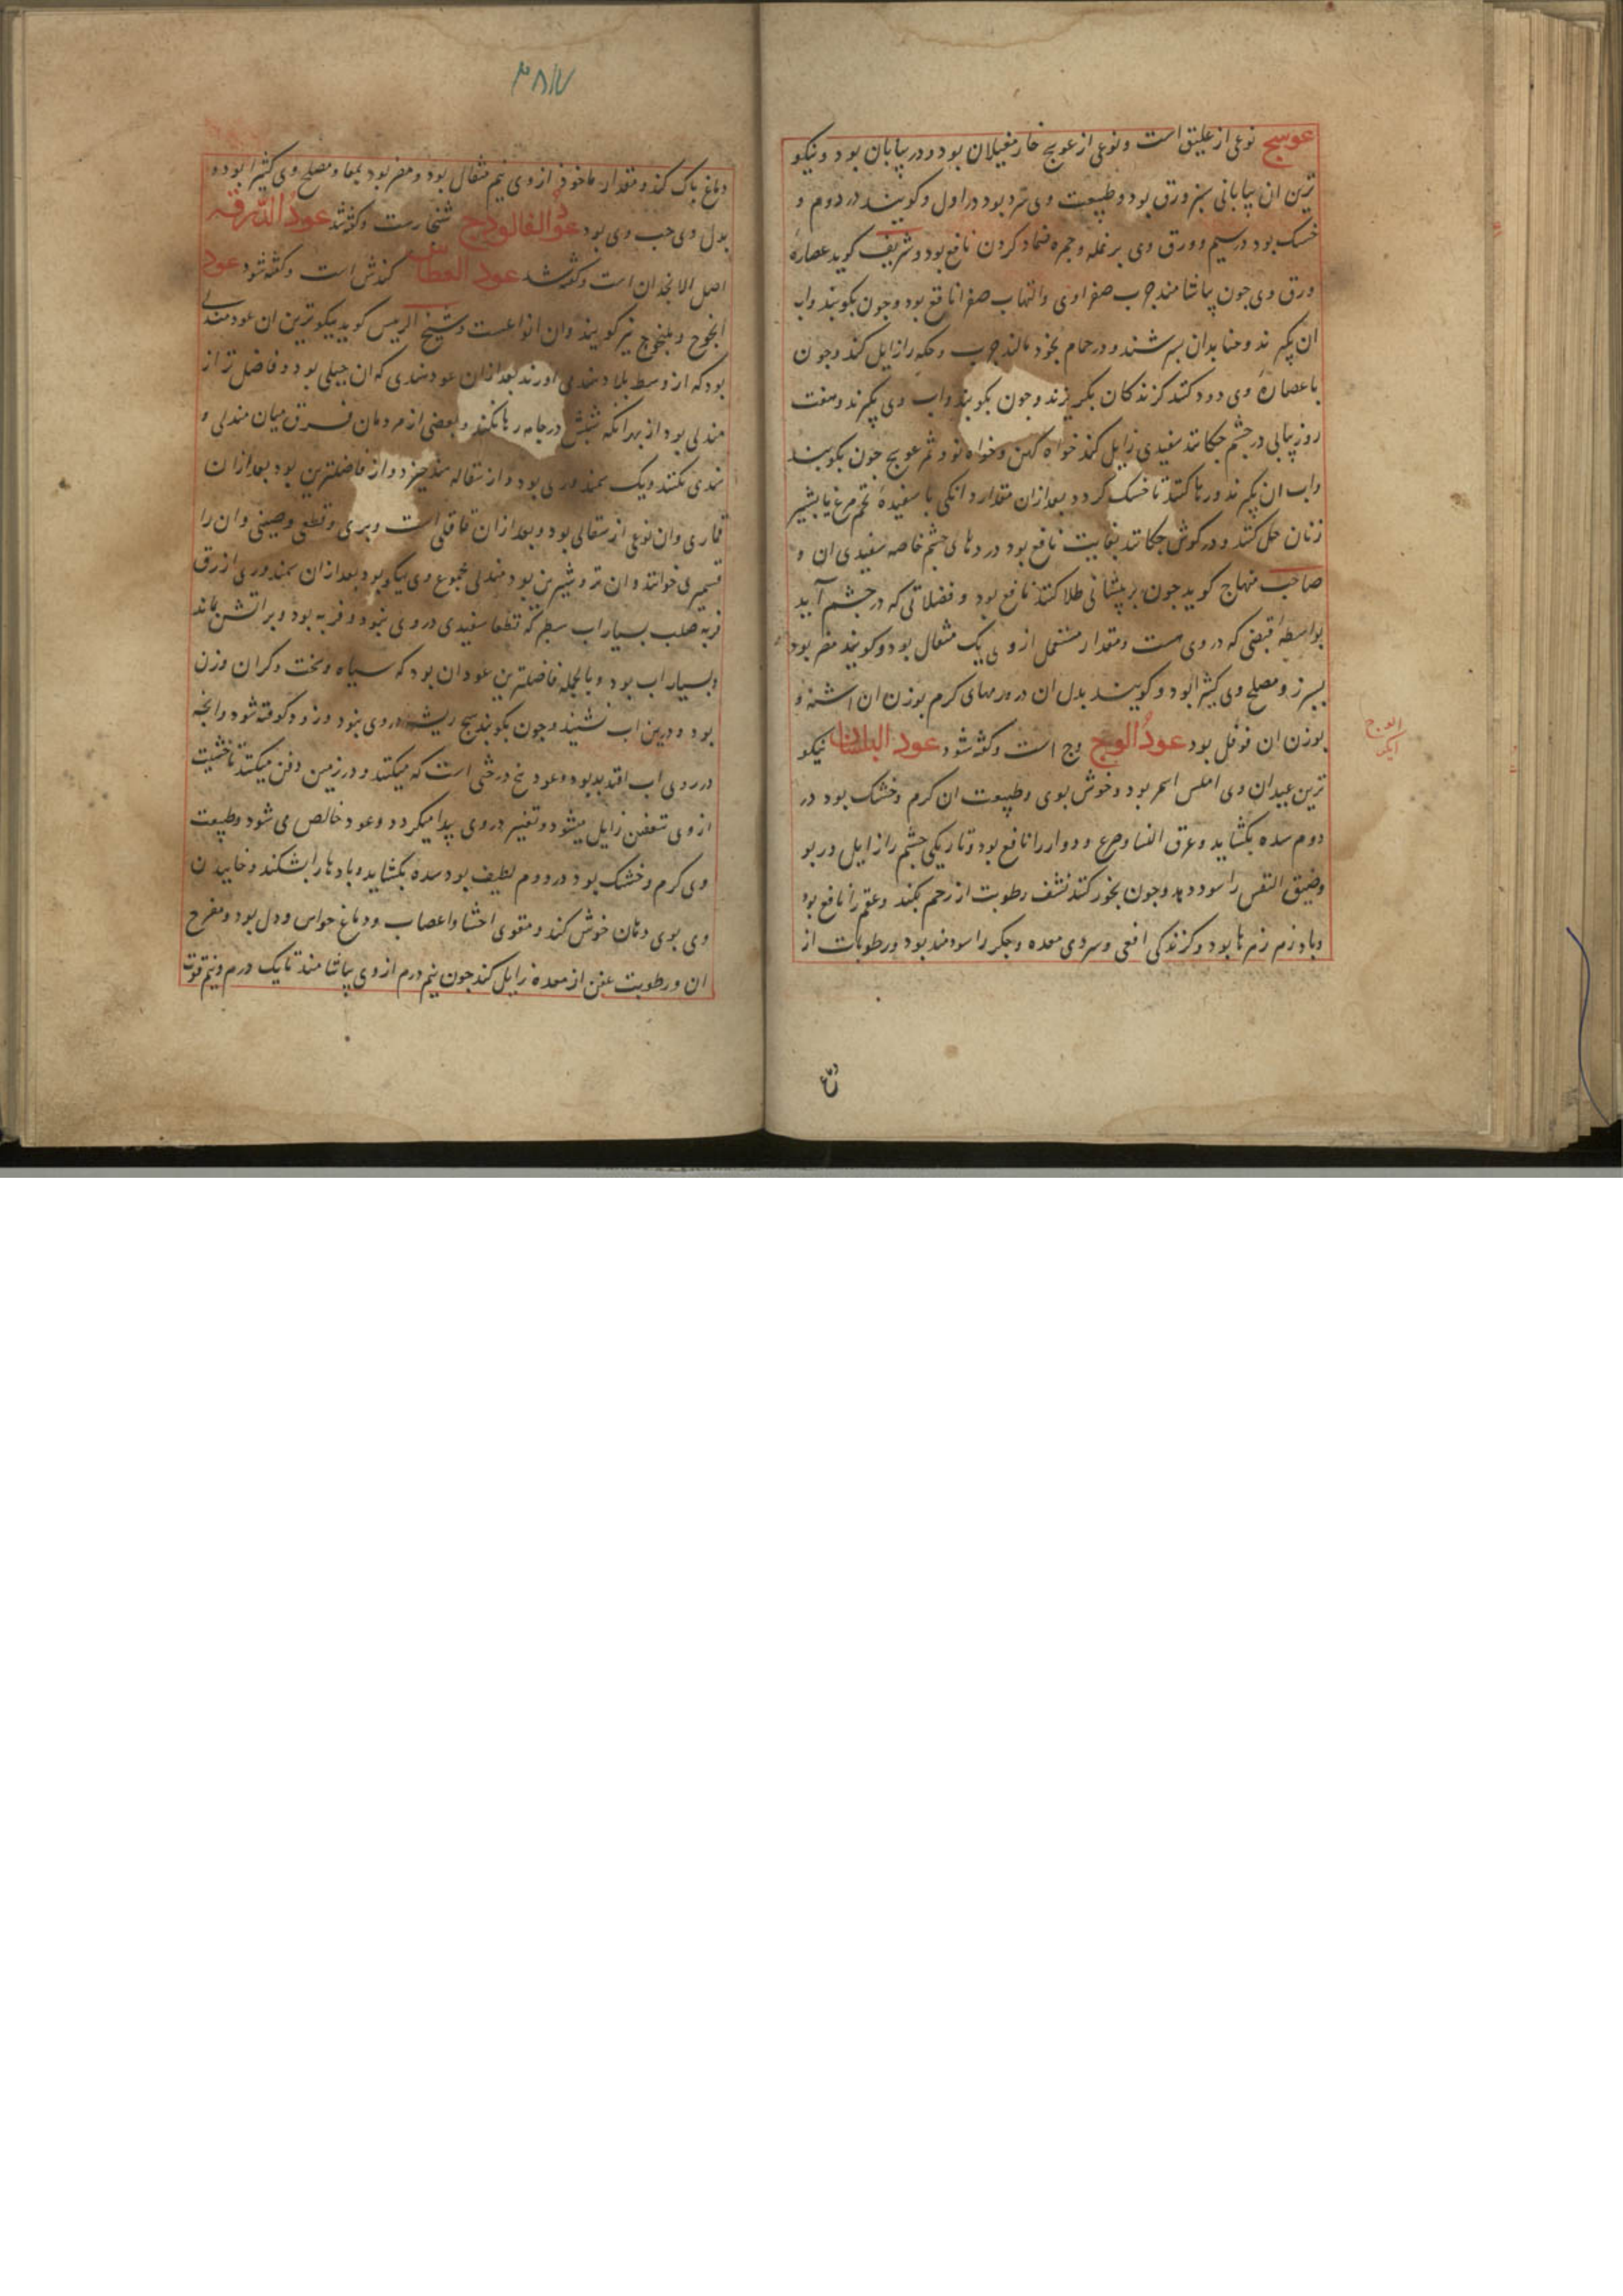 عوسج نوعی از علیق است و نوعی از عوسج خار مغیلان بود و در بیابان بود و نیکو
ترین ان بیابانی سبز ورق بود و طبیعت وی سرد بود در اول و کویند در دوم و
خسک بود در سیم و ورق وی بر نمله و حمره ضماد کردن نافع بود و شریف کوید عصاره
ورق وی جون بیاشامند جرب صفراوی و التهاب صفرا نافع بود و جون بکوبند واب
ان بکیرند و حنا بدان بسرشند و در حمام بخود مالند جرب و حکه را زایل کند و جون
با عصاره وی دود کنند کزندکان بکریزند و جون بکوبند واب وی بکیرند و هفت
روز بیابی در جشم جکانند سفیدی زایل کند خواه کهن و خواه نو و ثمر عوسج جون بکوبند
واب ان بکیرند و رها کنند تا خسک کردد بعد ازان مقدار دانکی با سفیده تخم مرغ یا بشیر
زنان حل کنند و در کوش جکانند بغایت نافع بود دردهای جشم خاصه سفیدی ان و
صاحب منهاج کوید جون بر پیشانی طلا کنند نافع بود و فضلاتی که در جشم آید
بواسطه قبضی که در وی هست و مقدار مستعمل از وی یک مثقال بود و کویند مضر بود
بسبرز و مصلح وی کثیرا بود و کویند بدل ان در ورمهای کرم بوزن ان اشنه و
بوزن ان فوفل بود عود الوج وج است و کفته شود عود البلسان نیکو
ترین عیدان وی املس اسمر بود و خوش بوی و طبیعت ان کرم و خشک بود در
دوم سده بکشاید و عرق النسا و صرع و دوار را نافع بود و تاریکی جشم را زایل و ربو
و ضیق النفس را سود دهد و جون بخور کنند نشف رطوبت از رحم بکند و عقم را نافع بود
و پادزهر زهرها بود و کزندکی افعی و سردی معده و جکر را سودمند بود و رطوبات از
الوج
اکیر
دماغ
۳۸۷
دماغ پاک کند و مقدار ماخوذ از وی نیم مثقال بود و مضر بود بمعا و مصلح وی کثیرا بود و
بدل وی حب وی بود عود الفالودج شخار است و کفته شد عود الشرفه
اصل الانجدان است و کفته شد عود العطاس کندش است و کفته شود عود
النجوج و یلنجوج نیز کویند وان انواعست و شیخ الرییس کوید نیکو ترین ان عود مندلی
بود که از وسط بلاد هند می اورند بعد ازان عود هندی که ان جبلی بود و فاضل تر از
مندلی بود از بهر انکه شبش در جامه رها نکند و بعضی از مردمان فرق میان مندلی و
هندی نکنند و یک سمندوری بود و از سقاله هند خیزد و از فاضلترین بود بعد ازان
قماری وان نوعی از سقالی بود و بعد ازان قاقلی است و بری و قطعی و صینی وان را
قسمیری خوانند وان تر و شیرین بود مندلی مجموع وی نیکو بود بعد ازان سمندوری ازرق
فربه صلب بسیار اب سطبر که قطعا سفیدی در وی نبود و فربه بود و بر اتش بماند
و بسیار اب بود و بالجمله فاضلترین عود ان بود که سیاه و سخت و کران وزن
بود و در بن اب نشیند و جون بکوبند هیج ریشه در وی نبود و زود کوفته شود و انجه
در روی اب افتد بد بود و عود بیخ درختی است که میکنند و در زمین دفن میکنند تا خشبیت
از وی تعفن زایل میشود و تغییر در وی پیدا میکردد و عود خالص می شود و طبیعت
وی کرم و خشک بود در دوم لطیف بود سده بکشاید و بادها را بشکند و خاییدن
وی بوی دهان خوش کند و مقوی احشا و اعصاب و دماغ حواس و دل بود و مفرح
ان و رطوبت عفن از معده زایل کند جون نیم درم از وی بیاشامند تا یک درم و نیم قوت